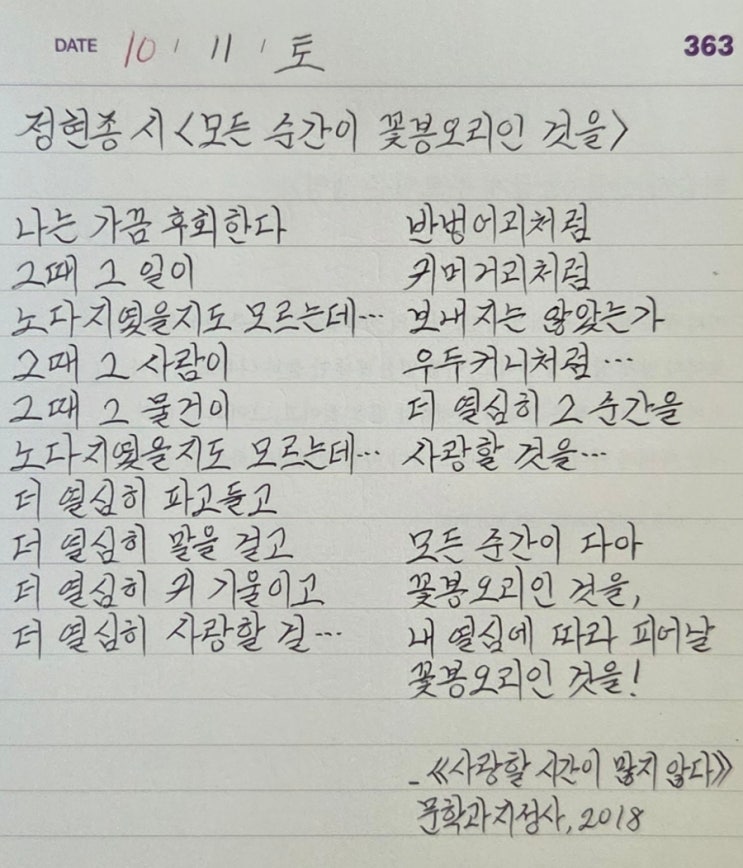 DATE 10 / 11 / 토
363
정현종 시 <모든 순간이 꽃봉오리인 것을>
나는 가끔 후회한다
그때 그 일이
노다지였을지도 모르는데…
그때 그 사람이
그때 그 물건이
노다지였을지도 모르는데…
더 열심히 파고들고
더 열심히 말을 걸고
더 열심히 귀 기울이고
더 열심히 사랑할 걸…
반벙어리처럼
귀머거리처럼
보내지는 않았는가
우두커니처럼…
더 열심히 그 순간을
사랑할 것을…
모든 순간이 다아
꽃봉오리인 것을,
내 열심에 따라 피어날
꽃봉오리인 것을!
_《사랑할 시간이 많지 않다》
문학과지성사, 2018